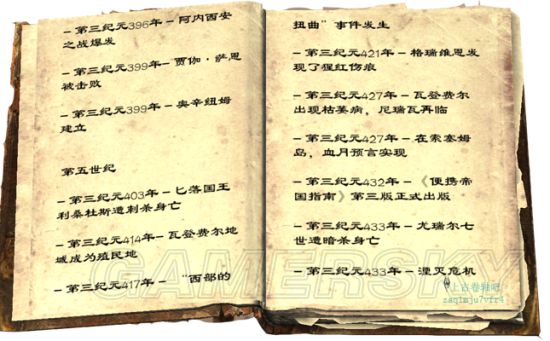 - 第三纪元396年 - 阿内西安
之战爆发
- 第三纪元399年- 贾伽·萨恩
被击败
- 第三纪元399年- 奥辛纽姆
建立
第五世纪
- 第三纪元403年 - 匕落国王
利桑杜斯遭刺杀身亡
- 第三纪元414年- 瓦登费尔地
域成为殖民地
- 第三纪元417年 - “西部的
扭曲”事件发生
- 第三纪元421年 - 格瑞维恩发
现了猩红伤痕
- 第三纪元427年 - 瓦登费尔
出现枯萎病，尼瑞瓦再临
- 第三纪元427年 - 在索塞姆
岛，血月预言实现
- 第三纪元432年 - 《便携帝
国指南》第三版正式出版
- 第三纪元433年 - 尤瑞尔七
世遭暗杀身亡
- 第三纪元433年 - 湮灭危机
GAMERSKY
上古卷轴吧
zaq1mju7vfr4